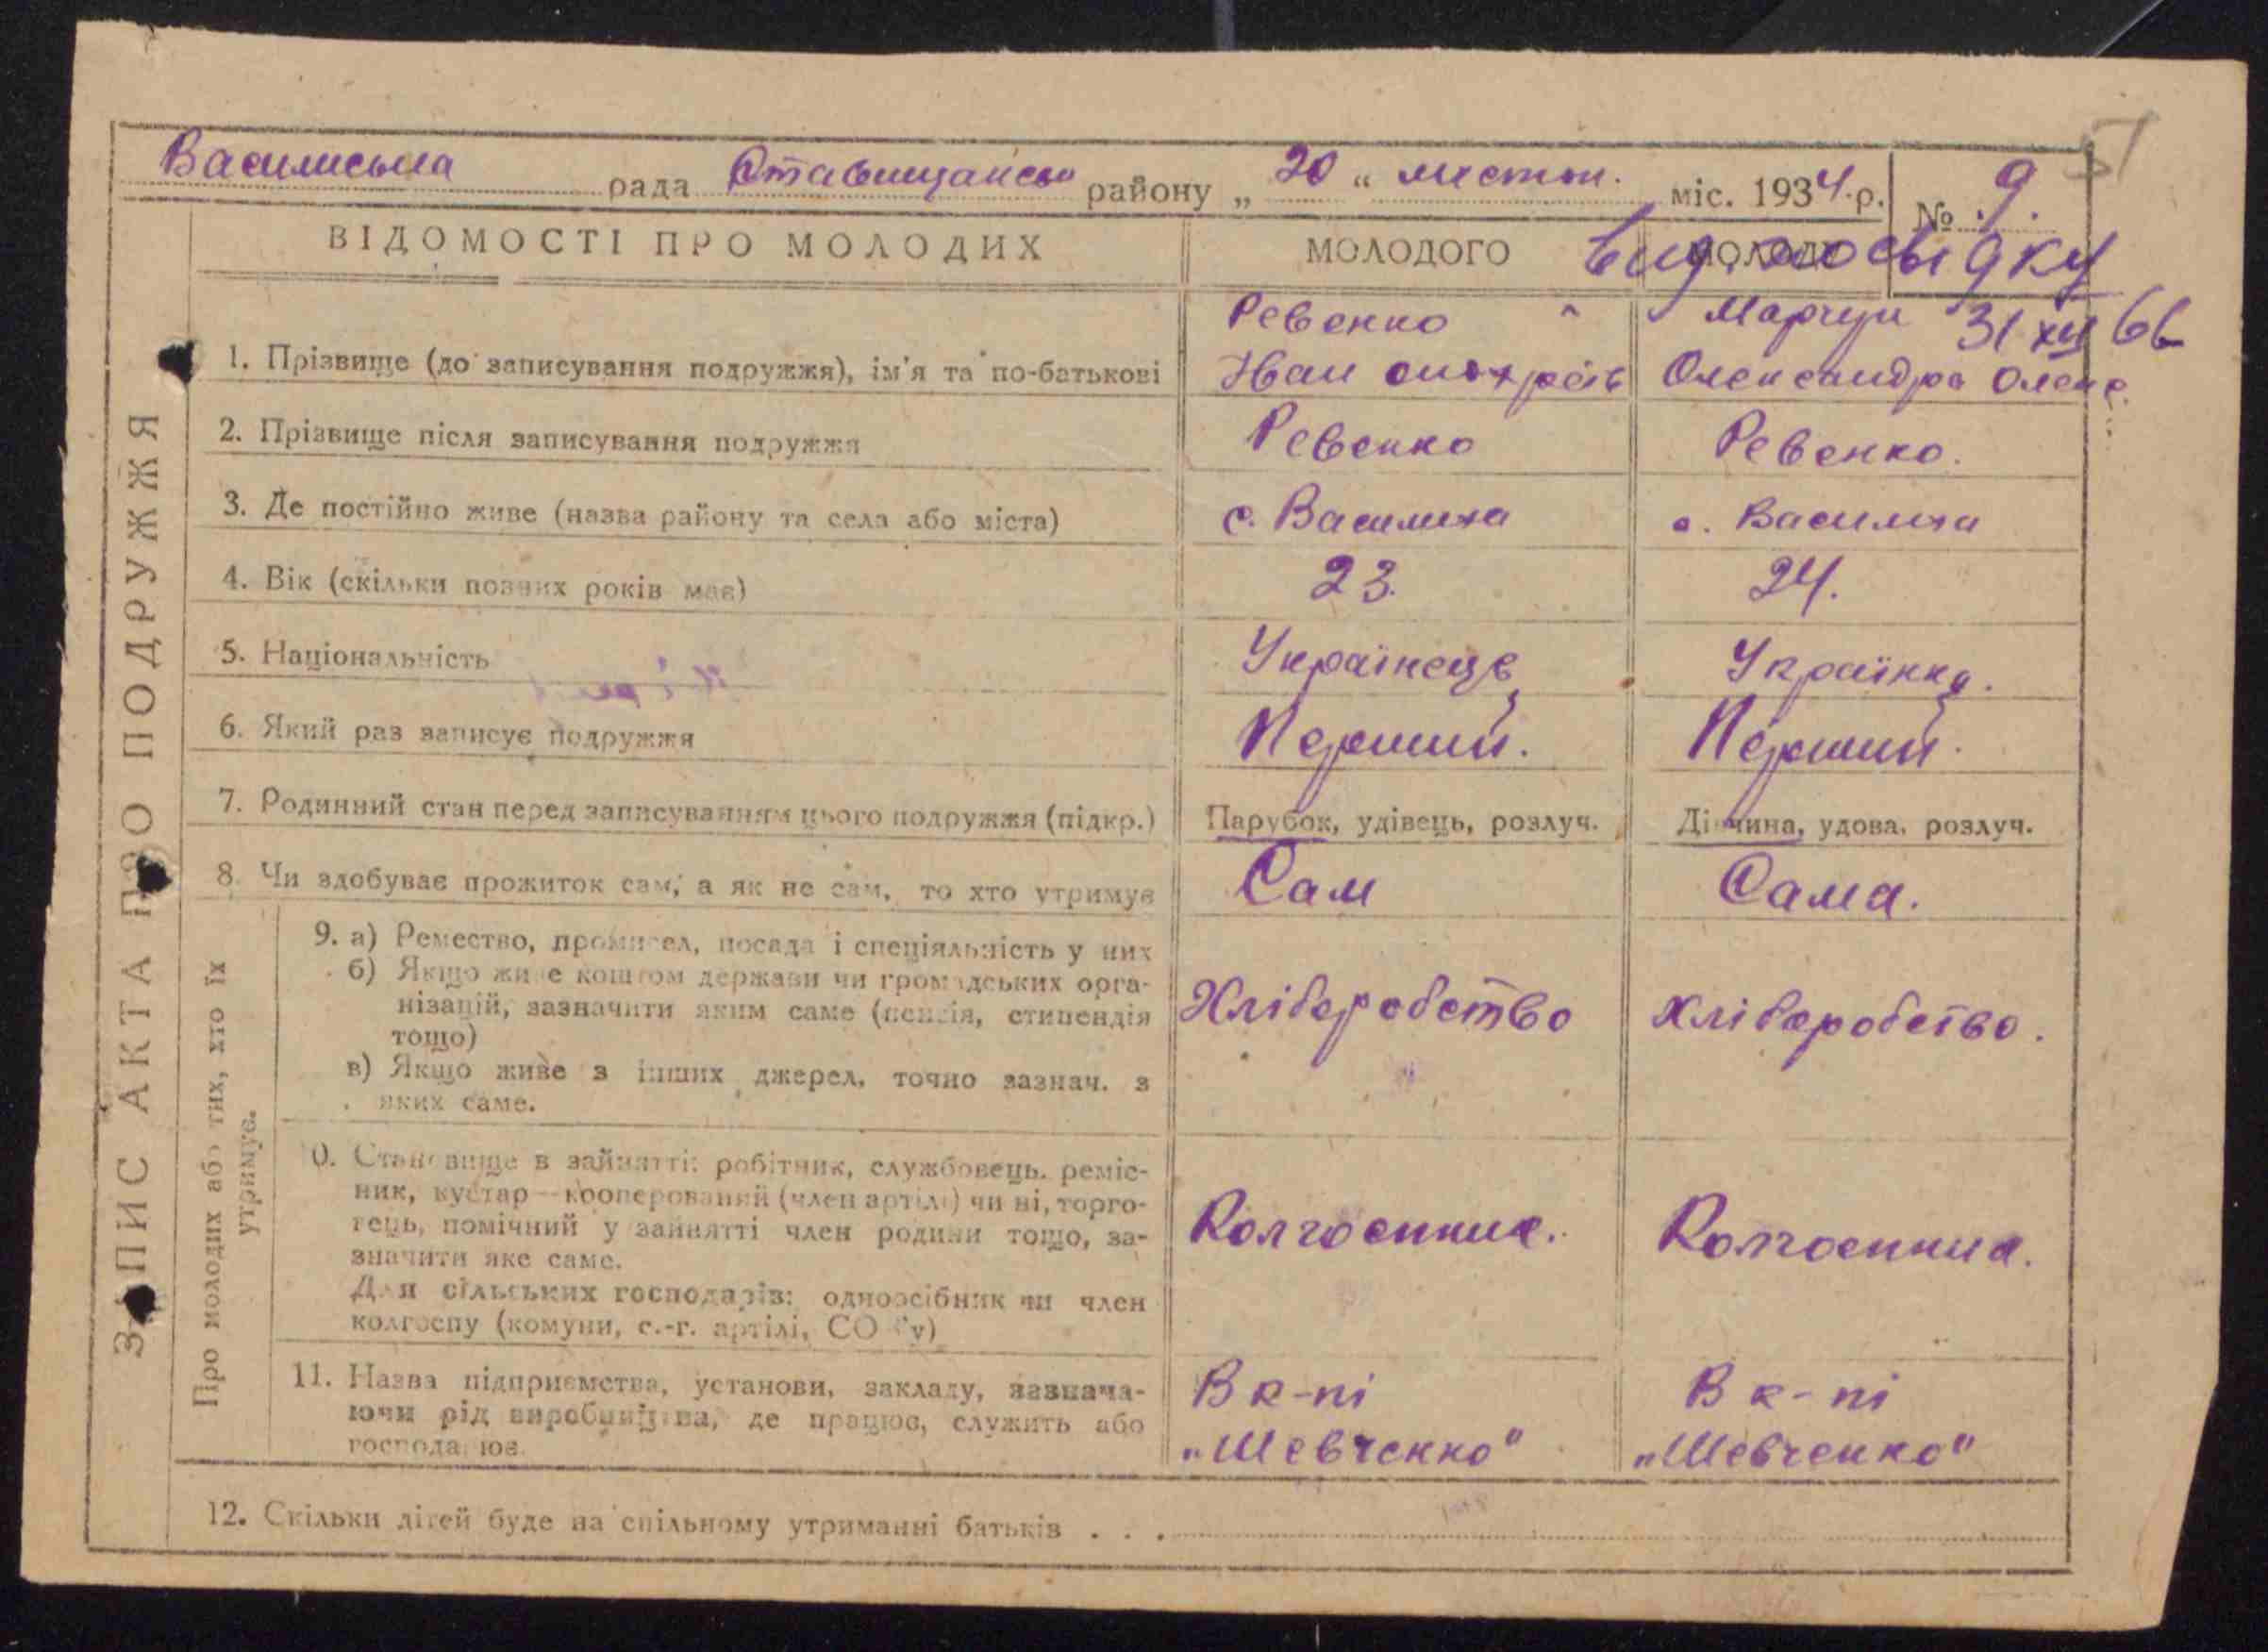 51
Василиська рада Ставищансь району „ 20 “ листоп. міс. 1934.р. № 9.
ВІДОМОСТІ ПРО МОЛОДИХ МОЛОДОГО МОЛОДО
вид. посвідку
31 XII 66
1. Прізвище (до записування подружжя), ім'я та по-батькові Ревенко Марчук
Іван Олександра Олекс.
2. Прізвище після записування подружжя Ревенко Ревенко.
3. Де постійно живе (назва району та села або міста) с. Василиха с. Василиха
4. Вік (скільки повних років має) 23. 24.
5. Національність Українець Українка.
6. Який раз записує подружжя Перший. Перший.
7. Родинний стан перед записуванням цього подружжя (підкр.) Парубок, удівець, розлуч. Дівчина, удова, розлуч.
8. Чи здобуває прожиток сам, а як не сам, то хто утримує Сам Сама.
9. а) Ремество, промисел, посада і спеціяльність у них
б) Якщо живе коштом держави чи громадських орга-
нізацій, зазначити яким саме (пенсія, стипендія Хліборобство Хліборобство.
тощо)
в) Якщо живе з інших джерел, точно зазнач. з
яких саме.
0. Становище в зайнятті: робітник, службовець, реміс-
ник, кустар—кооперований (член артілі) чи ні, торго-
тець, помічний у зайнятті член родини тощо, за- Колгоспник. Колгоспниця.
значити яке саме.
Для сільських господарів: одноосібник чи член
колгоспу (комуни, с.-г. артілі, СО у)
11. Назва підприємства, установи, закладу, зазнача- В к-пі В к-пі
ючи рід виробництва, де працює, служить або „Шевченко" „Шевченко"
господарює.
12. Скільки дітей буде на спільному утриманні батьків . . .
ЗАПИС АКТА ПРО ПОДРУЖЖЯ
Про молодих або тих, хто їх
утримує.